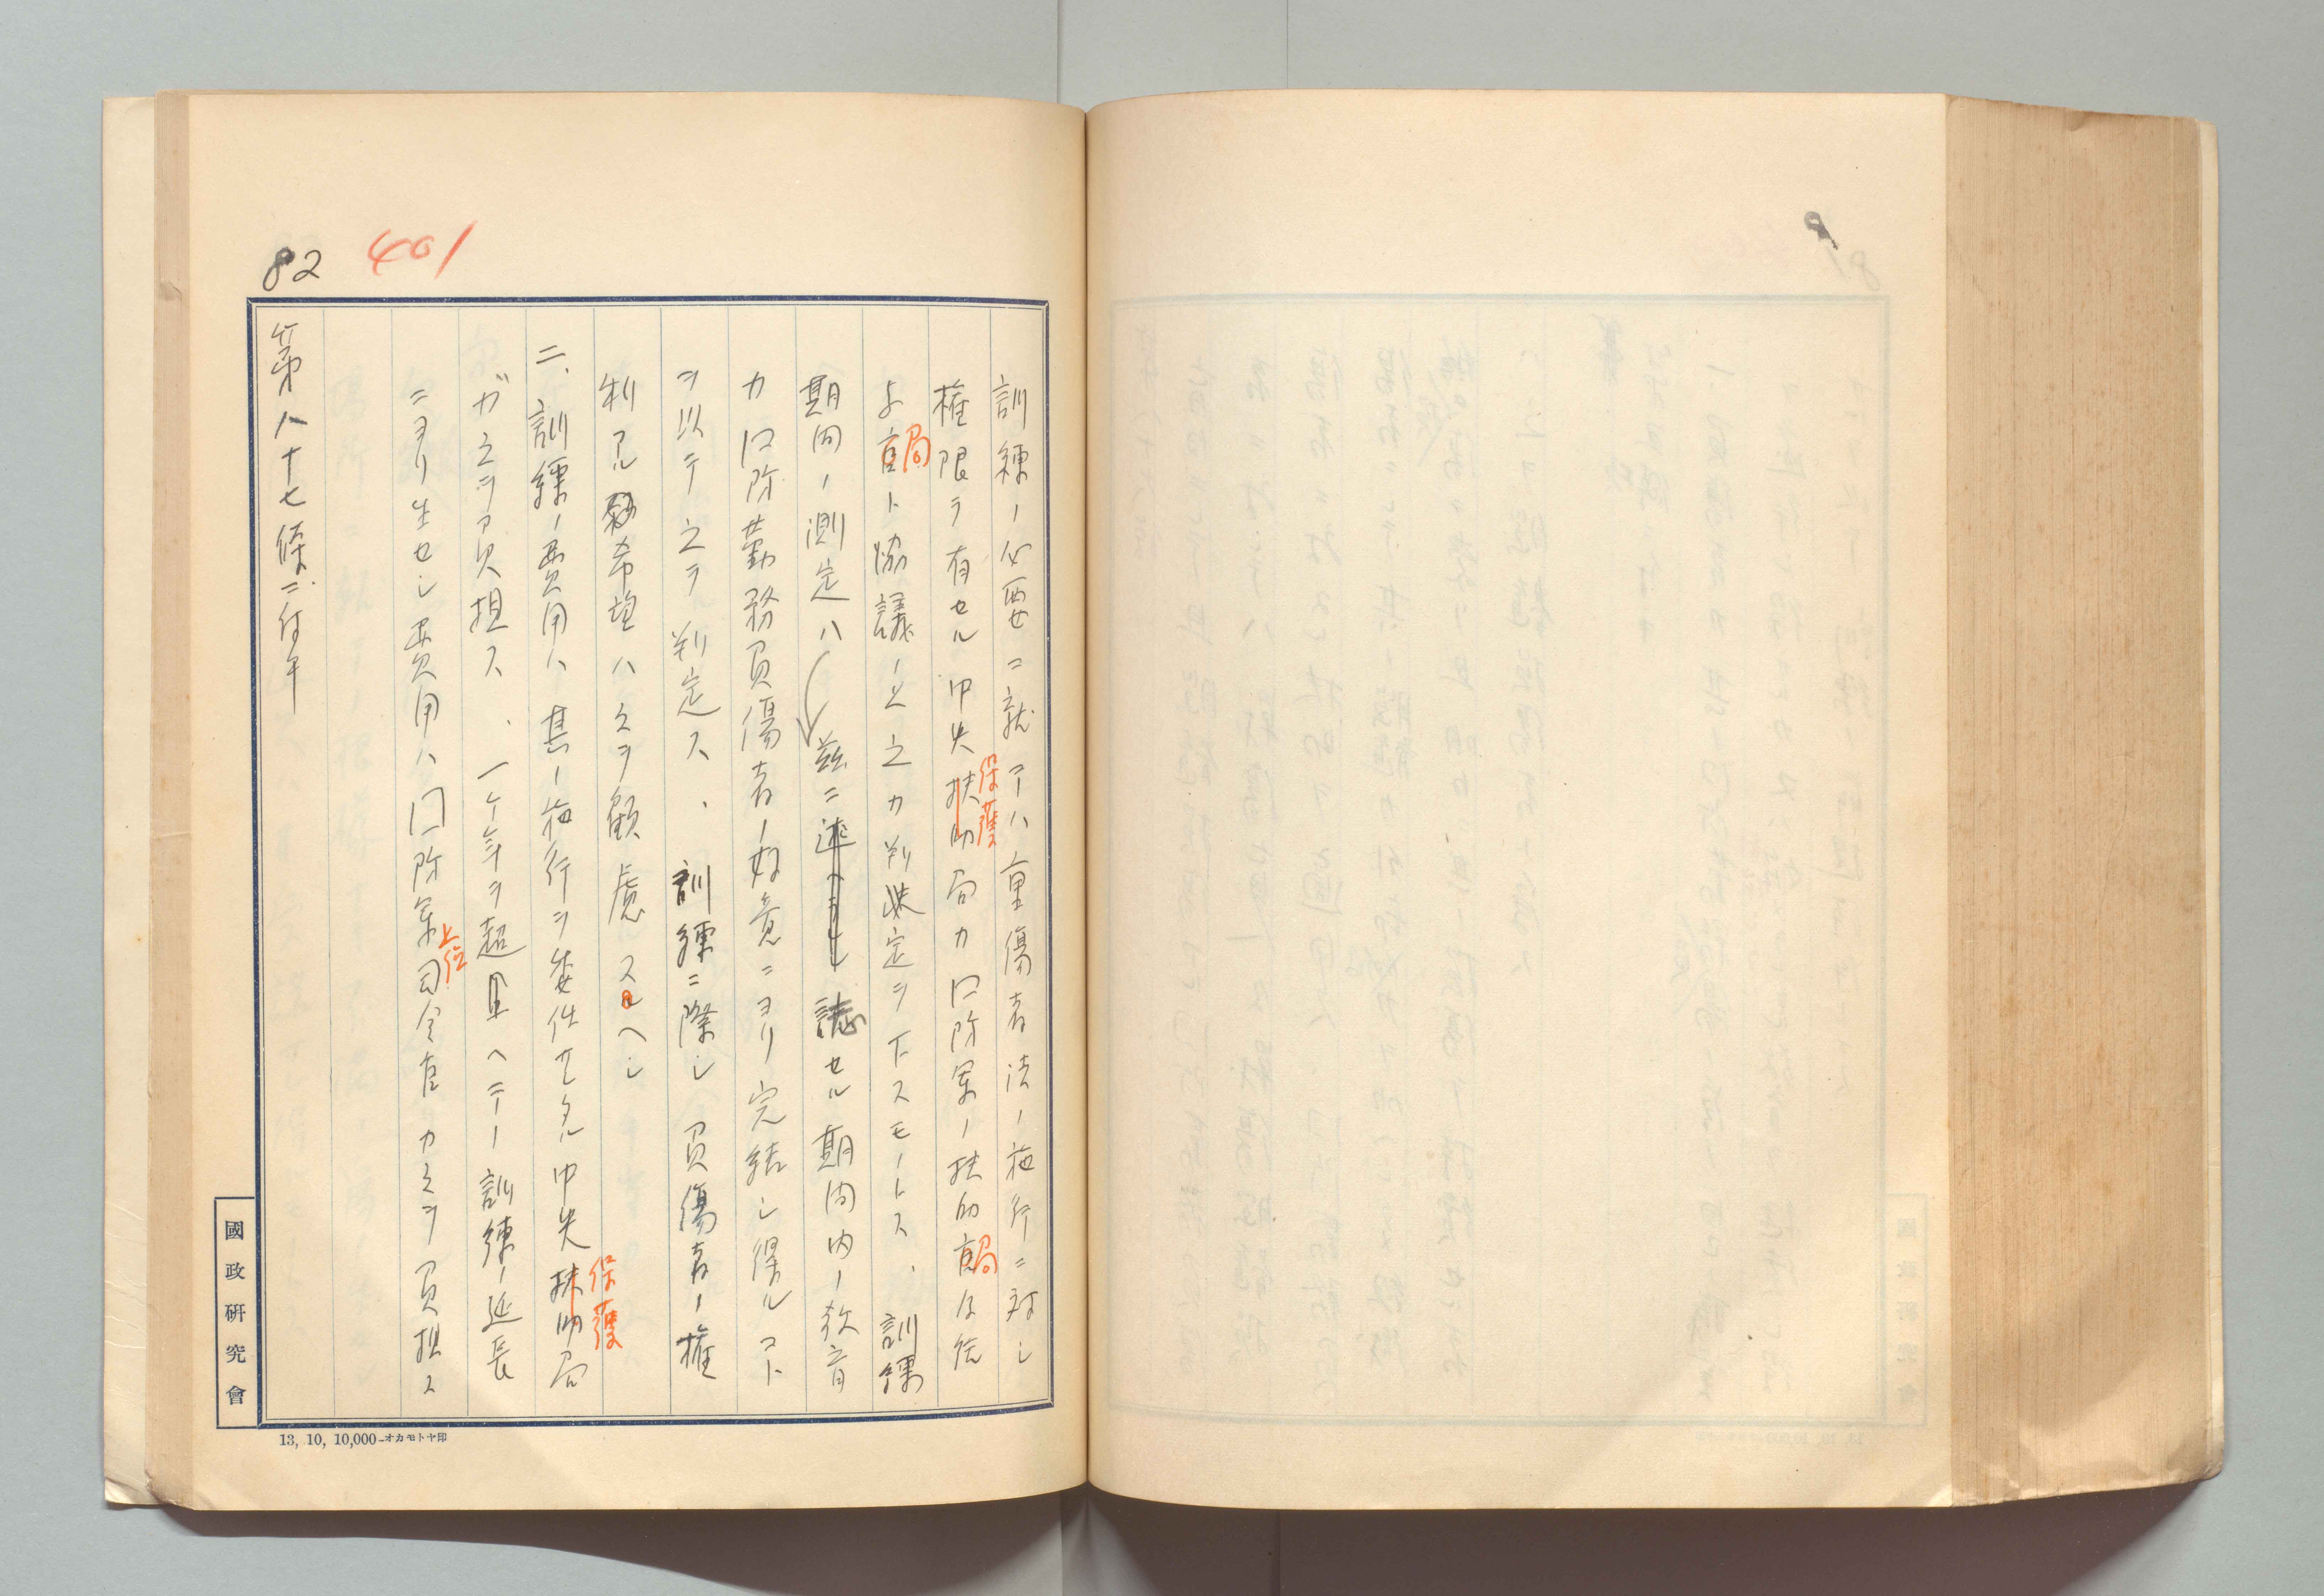 82
401
訓練ノ必要ニ就テハ重傷者法ノ施行ニ対シ
権限ヲ有セル中央扶助局カ口防軍ノ扶助官局及
保護
官局ト協議ノ上之カ判定ヲ下スモノトス、訓練
期間ノ測定ハ茲ニ誌セル期間内ノ教育
カ口防勤務負傷者ノ好意ニヨリ完結シ得ルコト
ヲ以テ之ヲ判定ス、訓練ニ際シ負傷者ノ権
利アル希望ハ之ヲ顧慮スヘシ
二、訓練ノ費用ハ其ノ施行ヲ委任サレタル中央扶助局
保護
ガ之ヲ負担ス、一ケ年ヲ超且ヘテノ訓練ノ延長
ニヨリ生セシ費用ハ口防軍司令官カ之ヲ負担ス
上位
第八十七條ニ付テ
國政研究會
13, 10, 10,000-オカモトヤ印